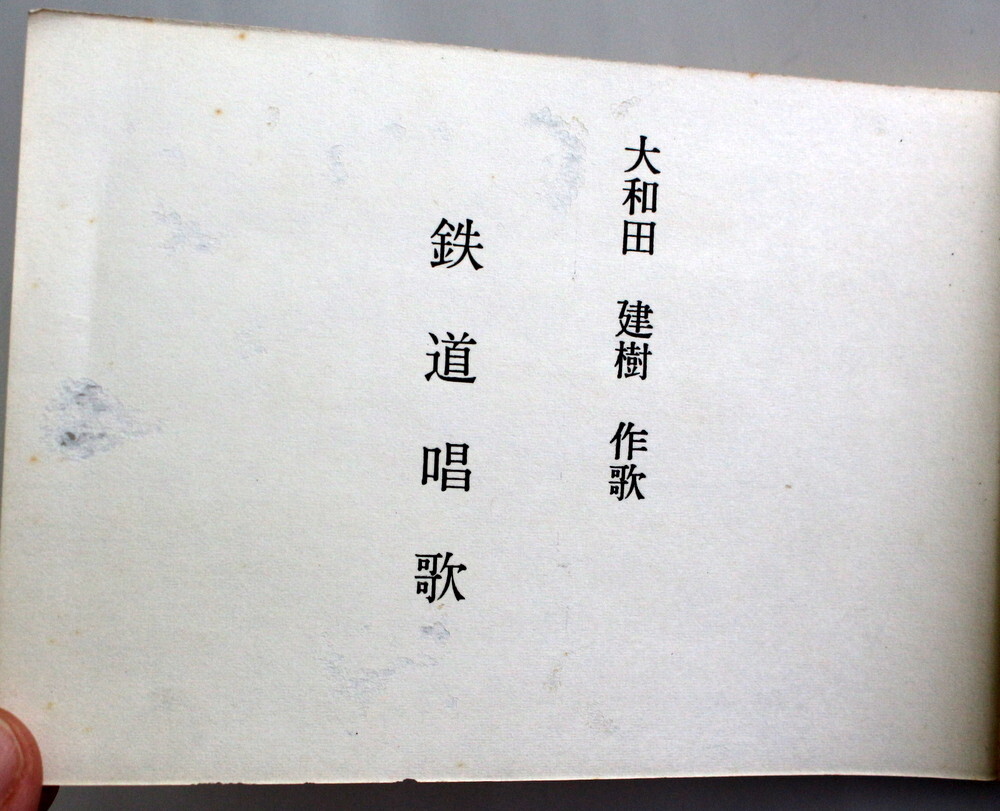 大和田 建樹 作歌
鉄道唱歌